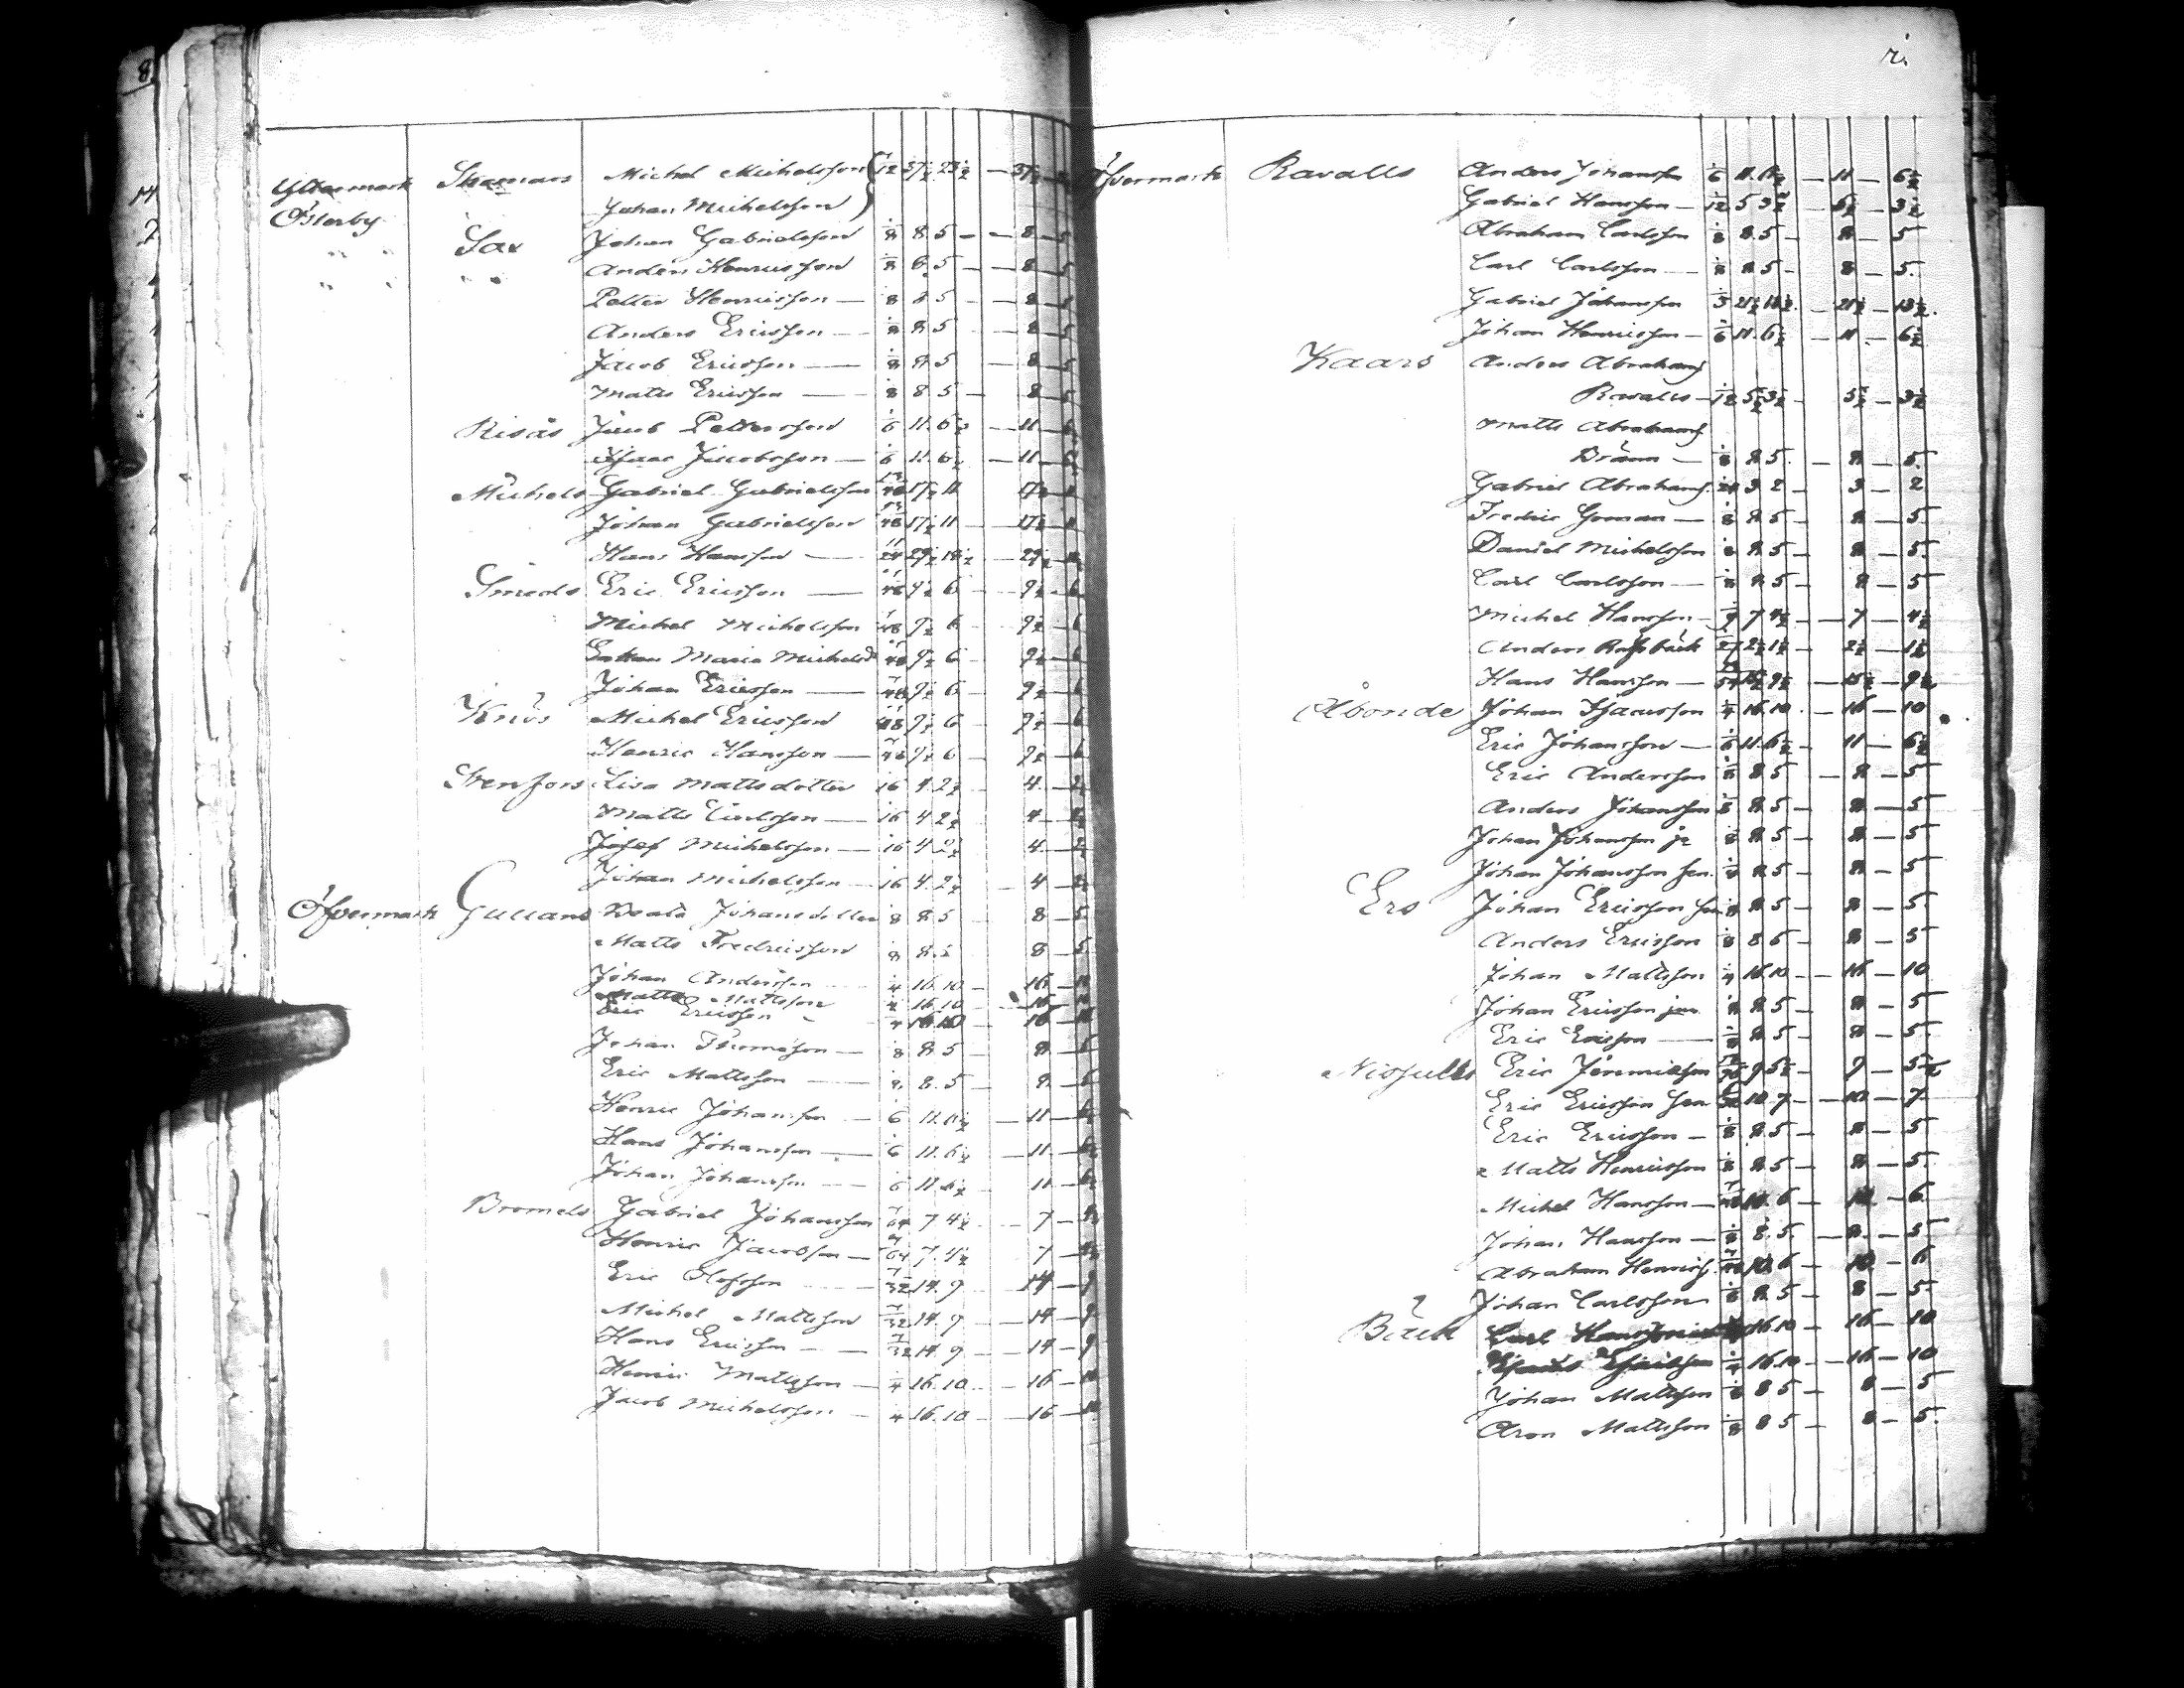 8.
Yttermark Skomars Michel Michelsson 1/12 37 1/2 23 1/2 — 37 1/2
Österby Johan Michelsson
" " Sax Johan Gabrielsson 1/8 8. 5 — — 8 — 5
" " " Anders Henricsson 1/8 8. 5 — — 8 — 5
Petter Henricsson — 1/8 8 5 — 8 — 5
Anders Ericsson — 1/8 8. 5 — 8 — 5
Jacob Ericsson — 1/8 8 5 — 8 — 5
Matts Ericsson — 1/8 8 5 — 8 — 5
Risås Jacob Pettersson 1/6 11. 6 1/2 — 11 —
Isaac Jacobsson — 1/6 11. 6 1/2 — 11 —
Michels Gabriel Gabrielsson 17 1/2 11 17 1/2
Johan Gabrielsson 17 1/2 11 — 17 1/2
Hans Hansson — 11/24 29 1/2 18 1/2 — 29 1/2
Smeds Eric Ericsson — 7/48 9 1/2 6 — 9 1/2 — 6
Michel Michelsson 7/48 9 1/2 6 9 1/2 — 6
Maria Michelsd 7/48 9 1/2 6 9 1/2 — 6
Johan Ericsson — 7/48 9 1/2 6 9 1/2 — 6
Knös Michel Ericsson 7/48 9 1/2 6 9 1/2 — 6
Henric Hansson — 7/48 9 1/2 6 9 1/2 — 6
Stenfors Lisa Mattsdotter 1/16 4 2 1/2 4 — 2 1/2
Matts Carlsson — 1/16 4 2 1/2 4 — 2 1/2
Josef Michelsson — 1/16 4 2 1/2 4 — 2 1/2
Johan Michelsson — 1/16 4. 2 1/2 — 4 — 2 1/2
Öfvermark Gullans Beata Johansdotter 1/8 8 5 8 — 5
Matts Fredricsson 1/8 8. 5 8 — 5
Johan Andersson 1/4 16. 10 — 16 — 10
Matts Mattsson 1/4 16. 10 — 16 — 10
Eric Ericsson 1/4 16 10 — 16 — 10
Johan Thomasson — 1/8 8 5 8 — 5
Eric Mattsson — 1/8 8. 5 — 8 — 5
Henric Johansson — 1/6 11. 6 1/2 — 11 — 6 1/2
Hans Johansson — 1/6 11. 6 1/2 — 11 — 6 1/2
Johan Johansson — 1/6 11. 6 1/2 11 — 6 1/2
Bromels Gabriel Johansson 7/64 7 4 1/2 — 7 — 4 1/2
Henric Jacobsson — 7/64 7. 4 1/2 7 — 4 1/2
Eric Olofsson — 7/32 14. 9 14 — 9
Michel Mattsson 7/32 14. 9 — 14 — 9
Hans Ericsson — 7/32 14 9 — 14 — 9
Henric Mattsson — 1/4 16. 10 — 16 — 10
Jacob Michelsson — 1/4 16. 10 — 16 — 10
Öfvermark Ravalls Anders Johansson 1/6 11. 6 1/2 — 11 — 6 1/2
Gabriel Hansson — 1/12 5 3 1/2 — 5 1/2 — 3 1/2
Abraham Carlsson 1/8 8. 5 — 8 — 5
Carl Carlsson — 1/8 8 5 — 8 — 5.
Gabriel Johansson 1/3 21 1/2 13 1/2. — 21 1/2 — 13 1/2.
Johan Henricsson — 1/6 11. 6 1/2 — 11 — 6 1/2
Kaars Anders Abrahams
Ravalls — 1/12 5 1/2 3 1/2 — 5 1/2 — 3 1/2
Matts Abrahams
Bränn — 1/8 8 5. — 8 — 5.
Gabriel Abrahams. 1/24 3 2 — 3 — 2
Fredric Groman — 1/8 8 5 — 8 — 5.
Daniel Michelsson 1/8 8 5 — 8 — 5.
Carl Carlsson — 1/8 8 5 — 8 — 5
Michel Hansson — 1/9 7 4 1/2 — 7 — 4 1/2
Anders Rossbäck 1/27 2 1/2 1 1/2 — 2 1/2 — 1 1/2
Hans Hansson — 15 1/2 9 1/2 — 15 1/2 — 9 1/2
Åbonde Johan Isacsson 1/4 16 10. — 16 — 10
Eric Johansson — 1/6 11. 6 1/2 — 11 — 6 1/2
Eric Andersson 1/8 8 5 — 8 — 5
Anders Johansson 1/8 8. 5 — 8 — 5
Johan Johansson jr 1/8 8. 5 — 8 — 5
Johan Johansson sen. 1/8 8 5 — 8 — 5
Ers Johan Ericsson sen 1/8 8 5 — 8 — 5
Anders Ericsson 1/8 8 5 — 8 — 5
Johan Mattsson 1/4 16 10 — 16 — 10
Johan Ericsson jun 1/8 8 5 — 8 — 5
Eric Ericsson — 1/8 8 5 — 8 — 5
Nisjulls Eric Jeremiasson 9 5 1/2 — 9 — 5 1/2
Eric Ericsson sen 10. 7 — 10 — 7.
Eric Ericsson — 1/8 8 5 — 8 — 5
Matts Henricsson 1/8 8 5 — 8 — 5
Michel Hansson — 10. 6 — 10. — 6
Johan Hansson — 1/8 8. 5. — 8. — 5
Abraham Henrics. 10. 6 — 10. — 6
Johan Carlsson 1/8 8. 5 — 8 — 5
Bäck Carl Hansson 16 10 — 16 — 10
1/4 16. 10 — 16 — 10
Johan Mattsson 1/8 8 5 — 8 — 5
Aron Mattsson 1/8 8 5 — 8 — 5.